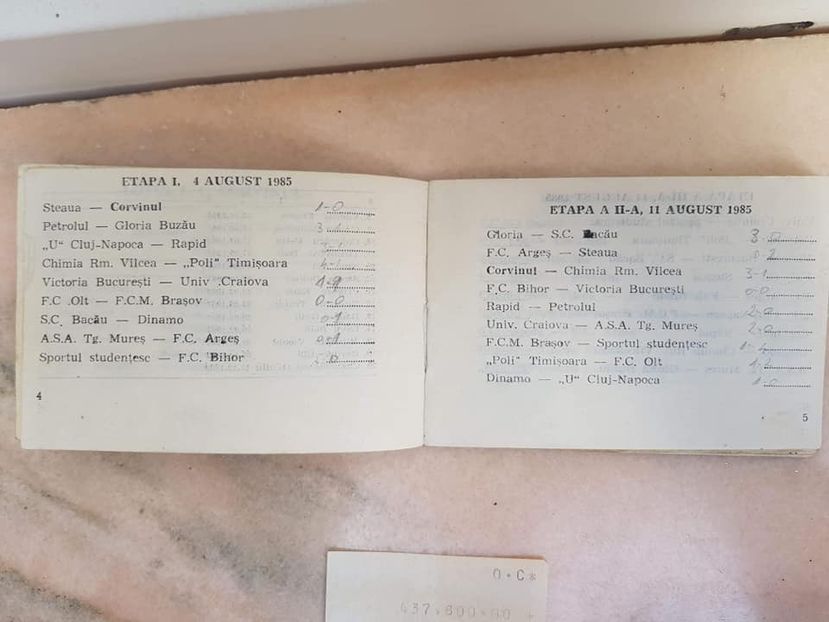 ETAPA I, 4 AUGUST 1985
Steaua — Corvinul 1-0
Petrolul — Gloria Buzău
„U“ Cluj-Napoca — Rapid
Chimia Rm. Vîlcea — „Poli“ Timişoara
Victoria Bucureşti — Univ .Craiova
F.C .Olt — F.C.M. Braşov 0-0
S.C. Bacău — Dinamo 0-1
A.S.A. Tg. Mureş — F.C. Argeş 0-1
Sportul studenţesc — F.C. Bihor
4
ETAPA A II-A, 11 AUGUST 1985
Gloria — S.C. Bacău
F.C. Argeş — Steaua
Corvinul — Chimia Rm. Vîlcea 3-1
F.C. Bihor — Victoria Bucureşti 0-0
Rapid — Petrolul 2-0
Univ. Craiova — A.S.A. Tg. Mureş 2-0
F.C.M. Braşov — Sportul studenţesc
„Poli“ Timişoara — F.C. Olt
Dinamo — „U“ Cluj-Napoca 1-0
5
0·C*
437,600·00 +